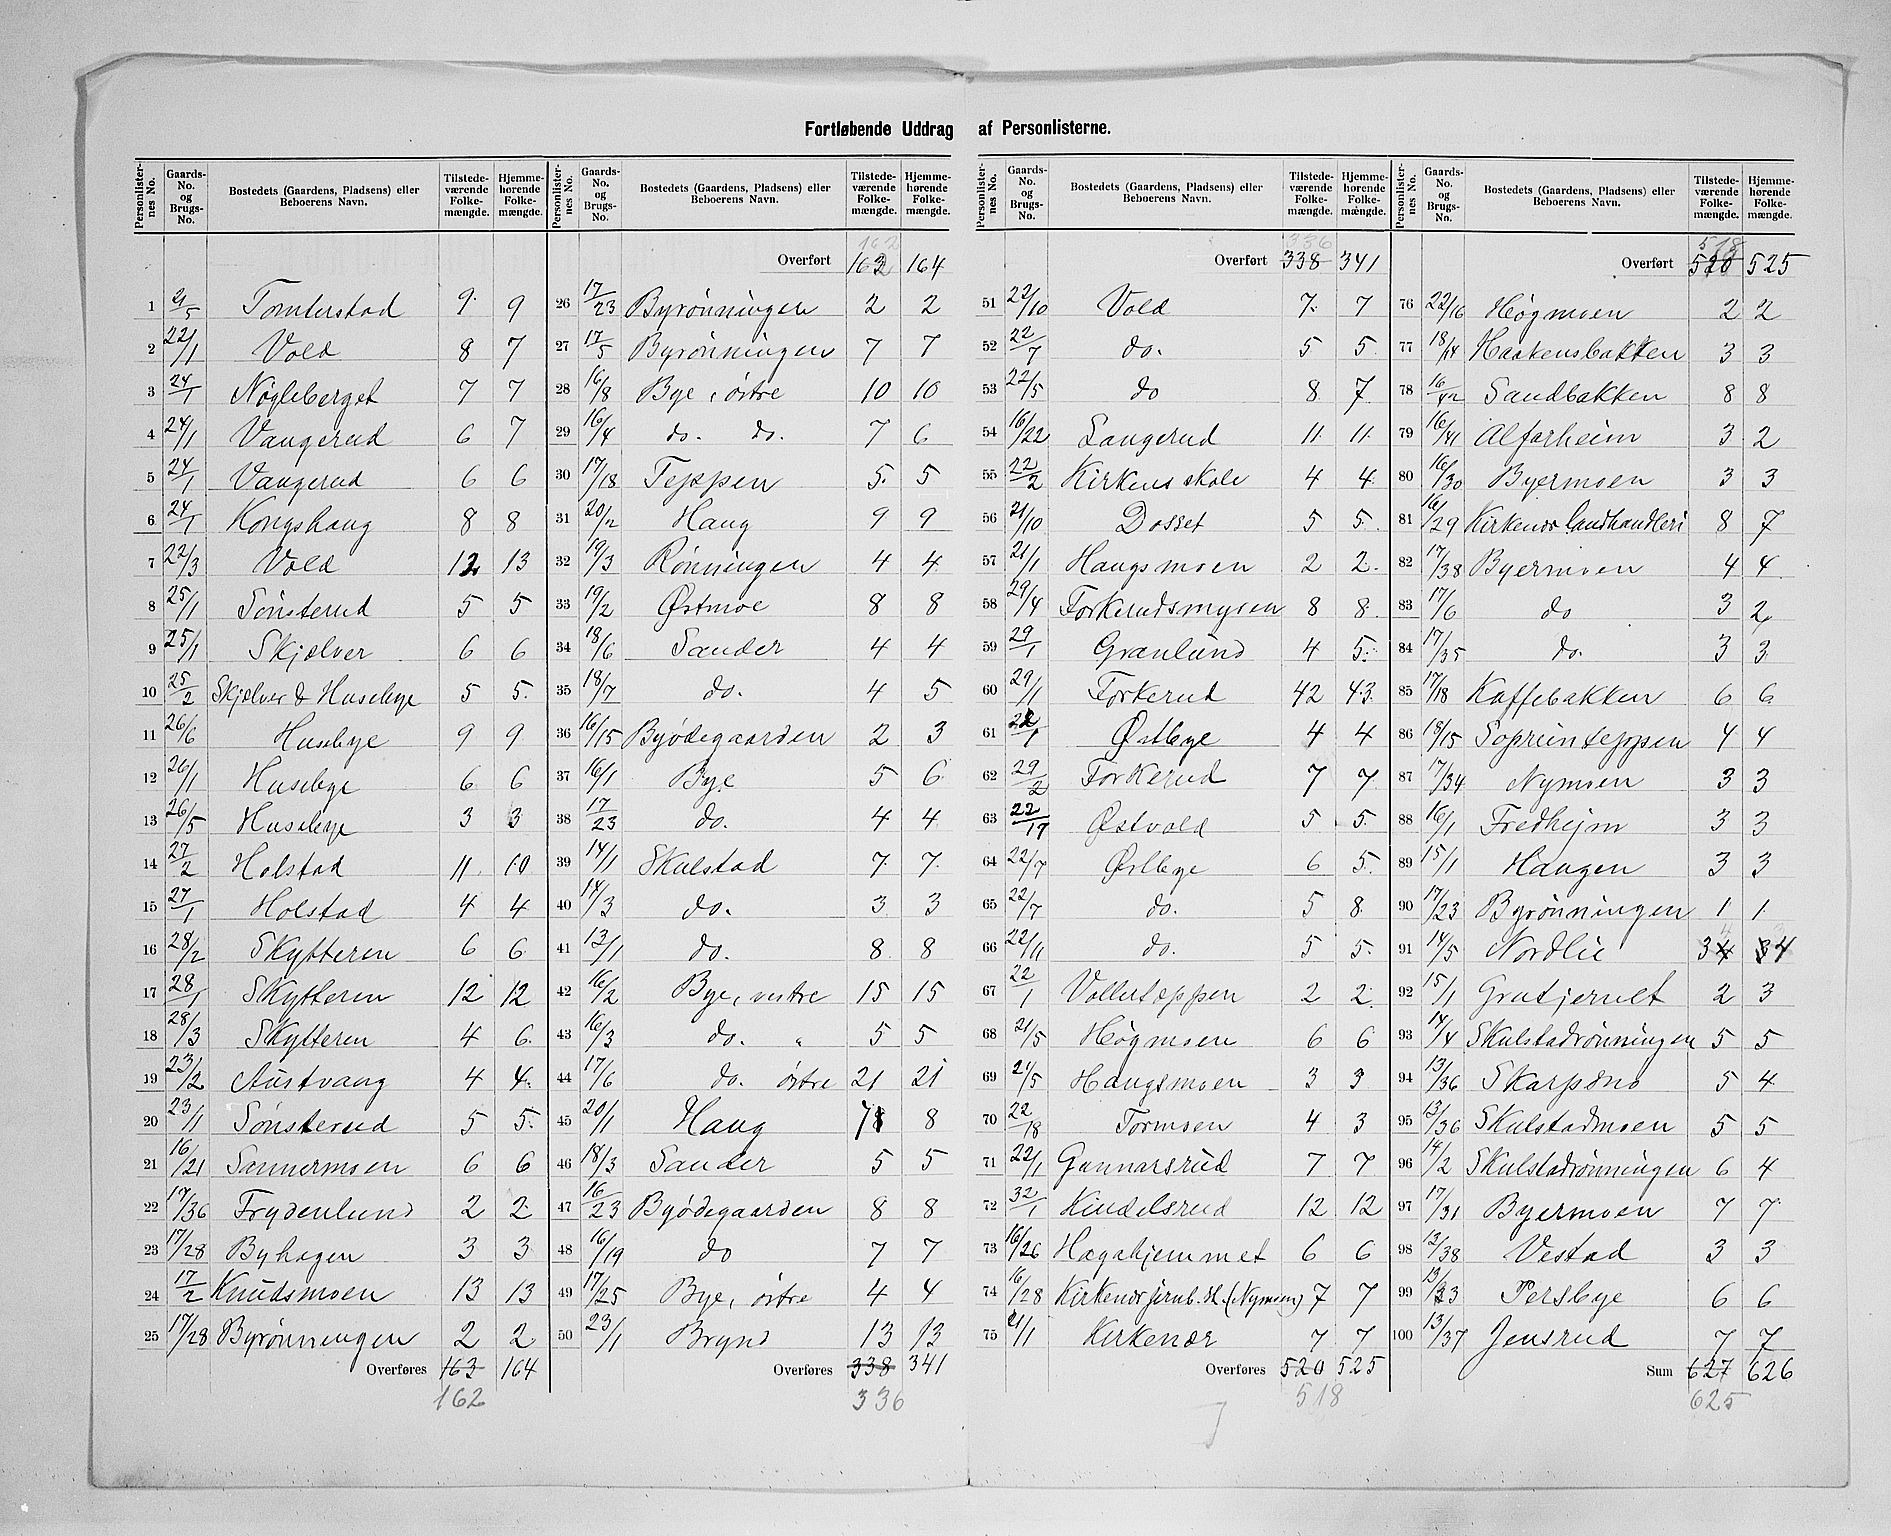 Fortløbende Uddrag af Personlisterne.
Personlister-nes No. Gaards-No. og Brugs-No. Bostedets (Gaardens, Pladsens) eller Beboerens Navn. Tilstede-værende Folke-mængde. Hjemme-hørende Folke-mængde.
1 2/5 Tomterstad 9 9
2 22/1 Vold 8 7
3 24/1 Nøgleberget 7 7
4 24/1 Vangerud 6 7
5 24/1 Vangerud 6 6
6 24/1 Kongshaug 8 8
7 22/3 Vold 12 13
8 25/1 Sønsterud 5 5
9 25/1 Skjølver 6 6
10 25/2 Skjølver & Husebye 5 5
11 26/6 Husebye 9 9
12 26/1 Husebye 6 6
13 26/5 Husebye 3 3
14 27/2 Holstad 11 10
15 27/1 Holstad 4 4
16 28/2 Skytteren 6 6
17 28/1 Skytteren 12 12
18 28/3 Skytteren 4 6
19 23/2 Austvang 4 4
20 23/1 Sønsterud 5 5
21 16/21 Sannermoen 6 6
22 17/36 Frydenlund 2 2
23 17/28 Byhagen 3 3
24 17/2 Knudsmoen 13 13
25 17/28 Byrønningen 2 2
Overføres 163 164
162
Personlister-nes No. Gaards-No. og Brugs-No. Bostedets (Gaardens, Pladsens) eller Beboerens Navn. Tilstede-værende Folke-mængde. Hjemme-hørende Folke-mængde.
162
Overført 163 164
26 17/23 Byrønningen 2 2
27 17/5 Byrønningen 7 7
28 16/8 Bye, østre 10 10
29 16/4 do. do. 7 6
30 17/18 Teppen 5 5
31 20/2 Haug 9 9
32 19/3 Rønningen 4 4
33 19/2 Østmoe 8 8
34 18/6 Sander 4 4
35 18/7 do. 4 5
36 16/15 Byødegaarden 2 3
37 16/1 Bye 5 6
38 17/23 do. 4 4
39 14/1 Skulstad 7 7
40 14/3 do. 3 3
41 13/1 do. 8 8
42 16/2 Bye, vestre 15 15
43 16/3 do. " 5 5
44 17/6 do. østre 21 21
45 20/1 Haug 7 8
46 18/3 Sander 5 5
47 16/23 Byødegaarden 8 8
48 16/19 do 7 7
49 17/25 Bye, østre 4 4
50 23/1 Brynd 13 13
Overføres 338 341
336
Personlister-nes No. Gaards-No. og Brugs-No. Bostedets (Gaardens, Pladsens) eller Beboerens Navn. Tilstede-værende Folke-mængde. Hjemme-hørende Folke-mængde.
336
Overført 338 341
51 22/10 Vold 7 7
52 22/7 do. 5 5
53 22/5 do 8 7
54 16/22 Langerud 11 11
55 22/2 Kirkens skole 4 4
56 21/10 Dosset 5 5
57 21/1 Haugsmoen 2 2
58 29/4 Forkerudsmyren 8 8
59 29/1 Granlund 4 5
60 29/1 Forkerud 42 43
61 22/1 Østbye 4 4
62 29/2 Forkerud 7 7
63 22/17 Østvold 5 5
64 22/7 Østbye 6 5
65 22/7 do. 5 8
66 22/11 do. 5 5
67 22/1 Vollerteppen 2 2
68 21/5 Høgmoen 6 6
69 21/5 Haugsmoen 3 3
70 22/18 Tormoen 4 3
71 22/1 Gunnarsrud 7 7
72 32/1 Kindelsrud 12 12
73 16/26 Hagahjemmet 6 6
74 16/28 Kirkenær jernb. st. (Nymoen) 7 7
75 21/1 Kirkenær 7 7
Overføres 520 525
518
Personlister-nes No. Gaards-No. og Brugs-No. Bostedets (Gaardens, Pladsens) eller Beboerens Navn. Tilstede-værende Folke-mængde. Hjemme-hørende Folke-mængde.
518
Overført 520 525
76 22/16 Høgmoen 2 2
77 18/14 Haakensbakken 3 3
78 16/42 Sandbakken 8 8
79 16/41 Alfarheim 3 2
80 16/30 Byermoen 3 3
81 16/29 Kirkenær landhandleri 8 7
82 17/38 Byermoen 4 4
83 17/6 do 3 2
84 17/35 do. 3 3
85 17/18 Kaffebakken 6 6
86 18/15 Soprimteppen 4 4
87 17/34 Nymoen 3 3
88 16/1 Fredhejm 3 3
89 15/1 Haugen 3 3
90 17/23 Byrønningen 1 1
91 14/5 Nordlie 3 4
92 15/1 Grutjernet 2 3
93 14/4 Skulstadrønningen 5 5
94 13/36 Skarpsno 5 4
95 13/36 Skulstadmoen 5 5
96 14/2 Skulstadrønningen 6 4
97 17/31 Byermoen 7 7
98 13/38 Vestad 3 3
99 13/23 Persbye 6 6
100 13/37 Jensrud 7 7
Sum 627 626
625